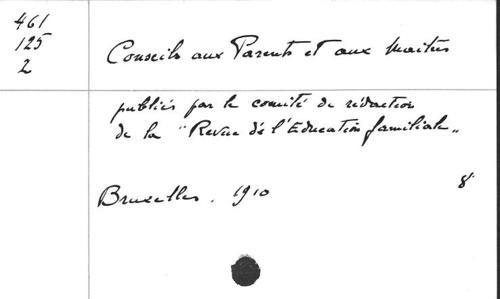 461
125
2
Conseils aux Parents et aux Maitres
publiés par le comité de rédaction
de la "Revue de l'Education familiale„
Bruxelles. 1910
8°